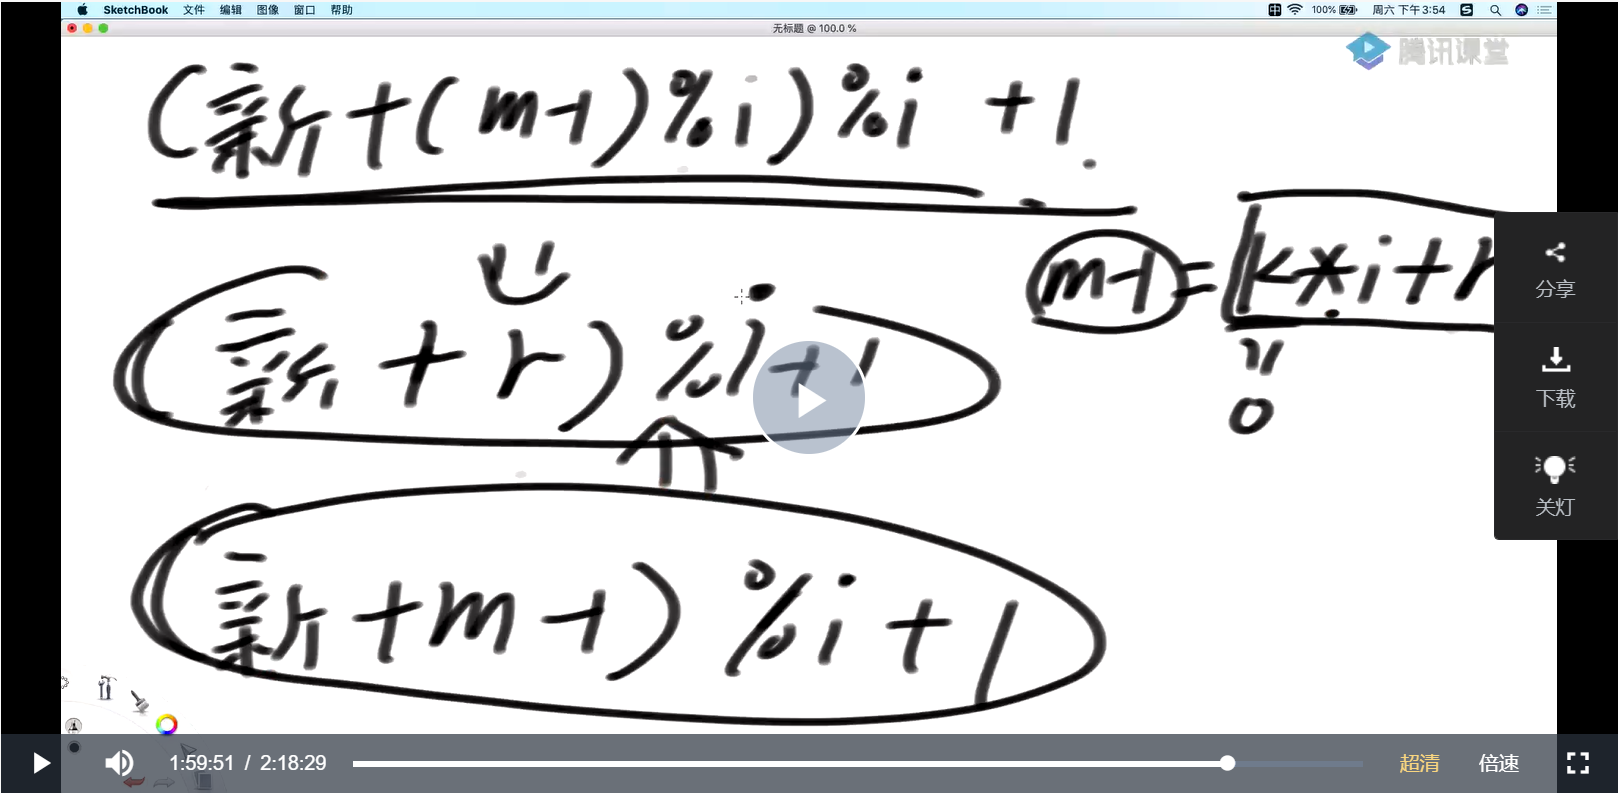 SketchBook 文件 编辑 图像 窗口 帮助 100% 周六 下午3:54
无标题 @ 100.0 %
腾讯课堂
(新+(m-1)%i)%i +1.
m-1=k×i+r
(新+r)%i+1
0
(新+m-1)%i+1
分享
下载
关灯
1:59:51 / 2:18:29 超清 倍速